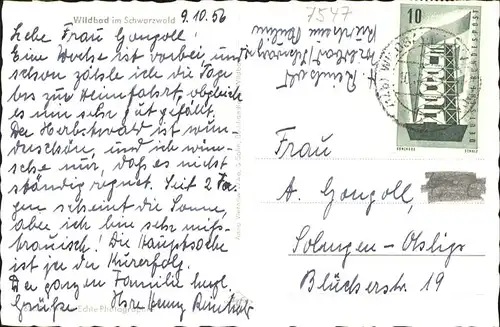 Wildbad im Schwarzwald
9.10.56
Liebe Frau Gongoll!
Eine Woche ist vorbei und
schon zähle ich die Tage
bis zur Heimfahrt, obgleich
es mir sehr gut gefällt.
Der Herbstwald ist wun-
derschön, und ich wün-
sche nur, daß es nicht
ständig regnet. Seit 2 Ta-
gen scheint die Sonne,
aber ich bin sehr miß-
trauisch! Die Hauptsache
ist ja der Kurerfolg.
Der ganzen Familie herzl.
Grüße Ihre Henny
7547
10
DEUTSCHE BUNDESPOST
Frau
A. Gongoll,
Solingen-Ohligs
Blücherstr. 19